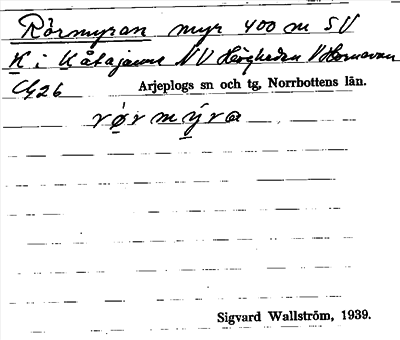 Rörmyran myr 400 m SV
K i Kåtajaure NV Högheden V Hornavan
Arjeplogs sn och tg, Norrbottens län.
rørmýra
Sigvard Wallström, 1939.